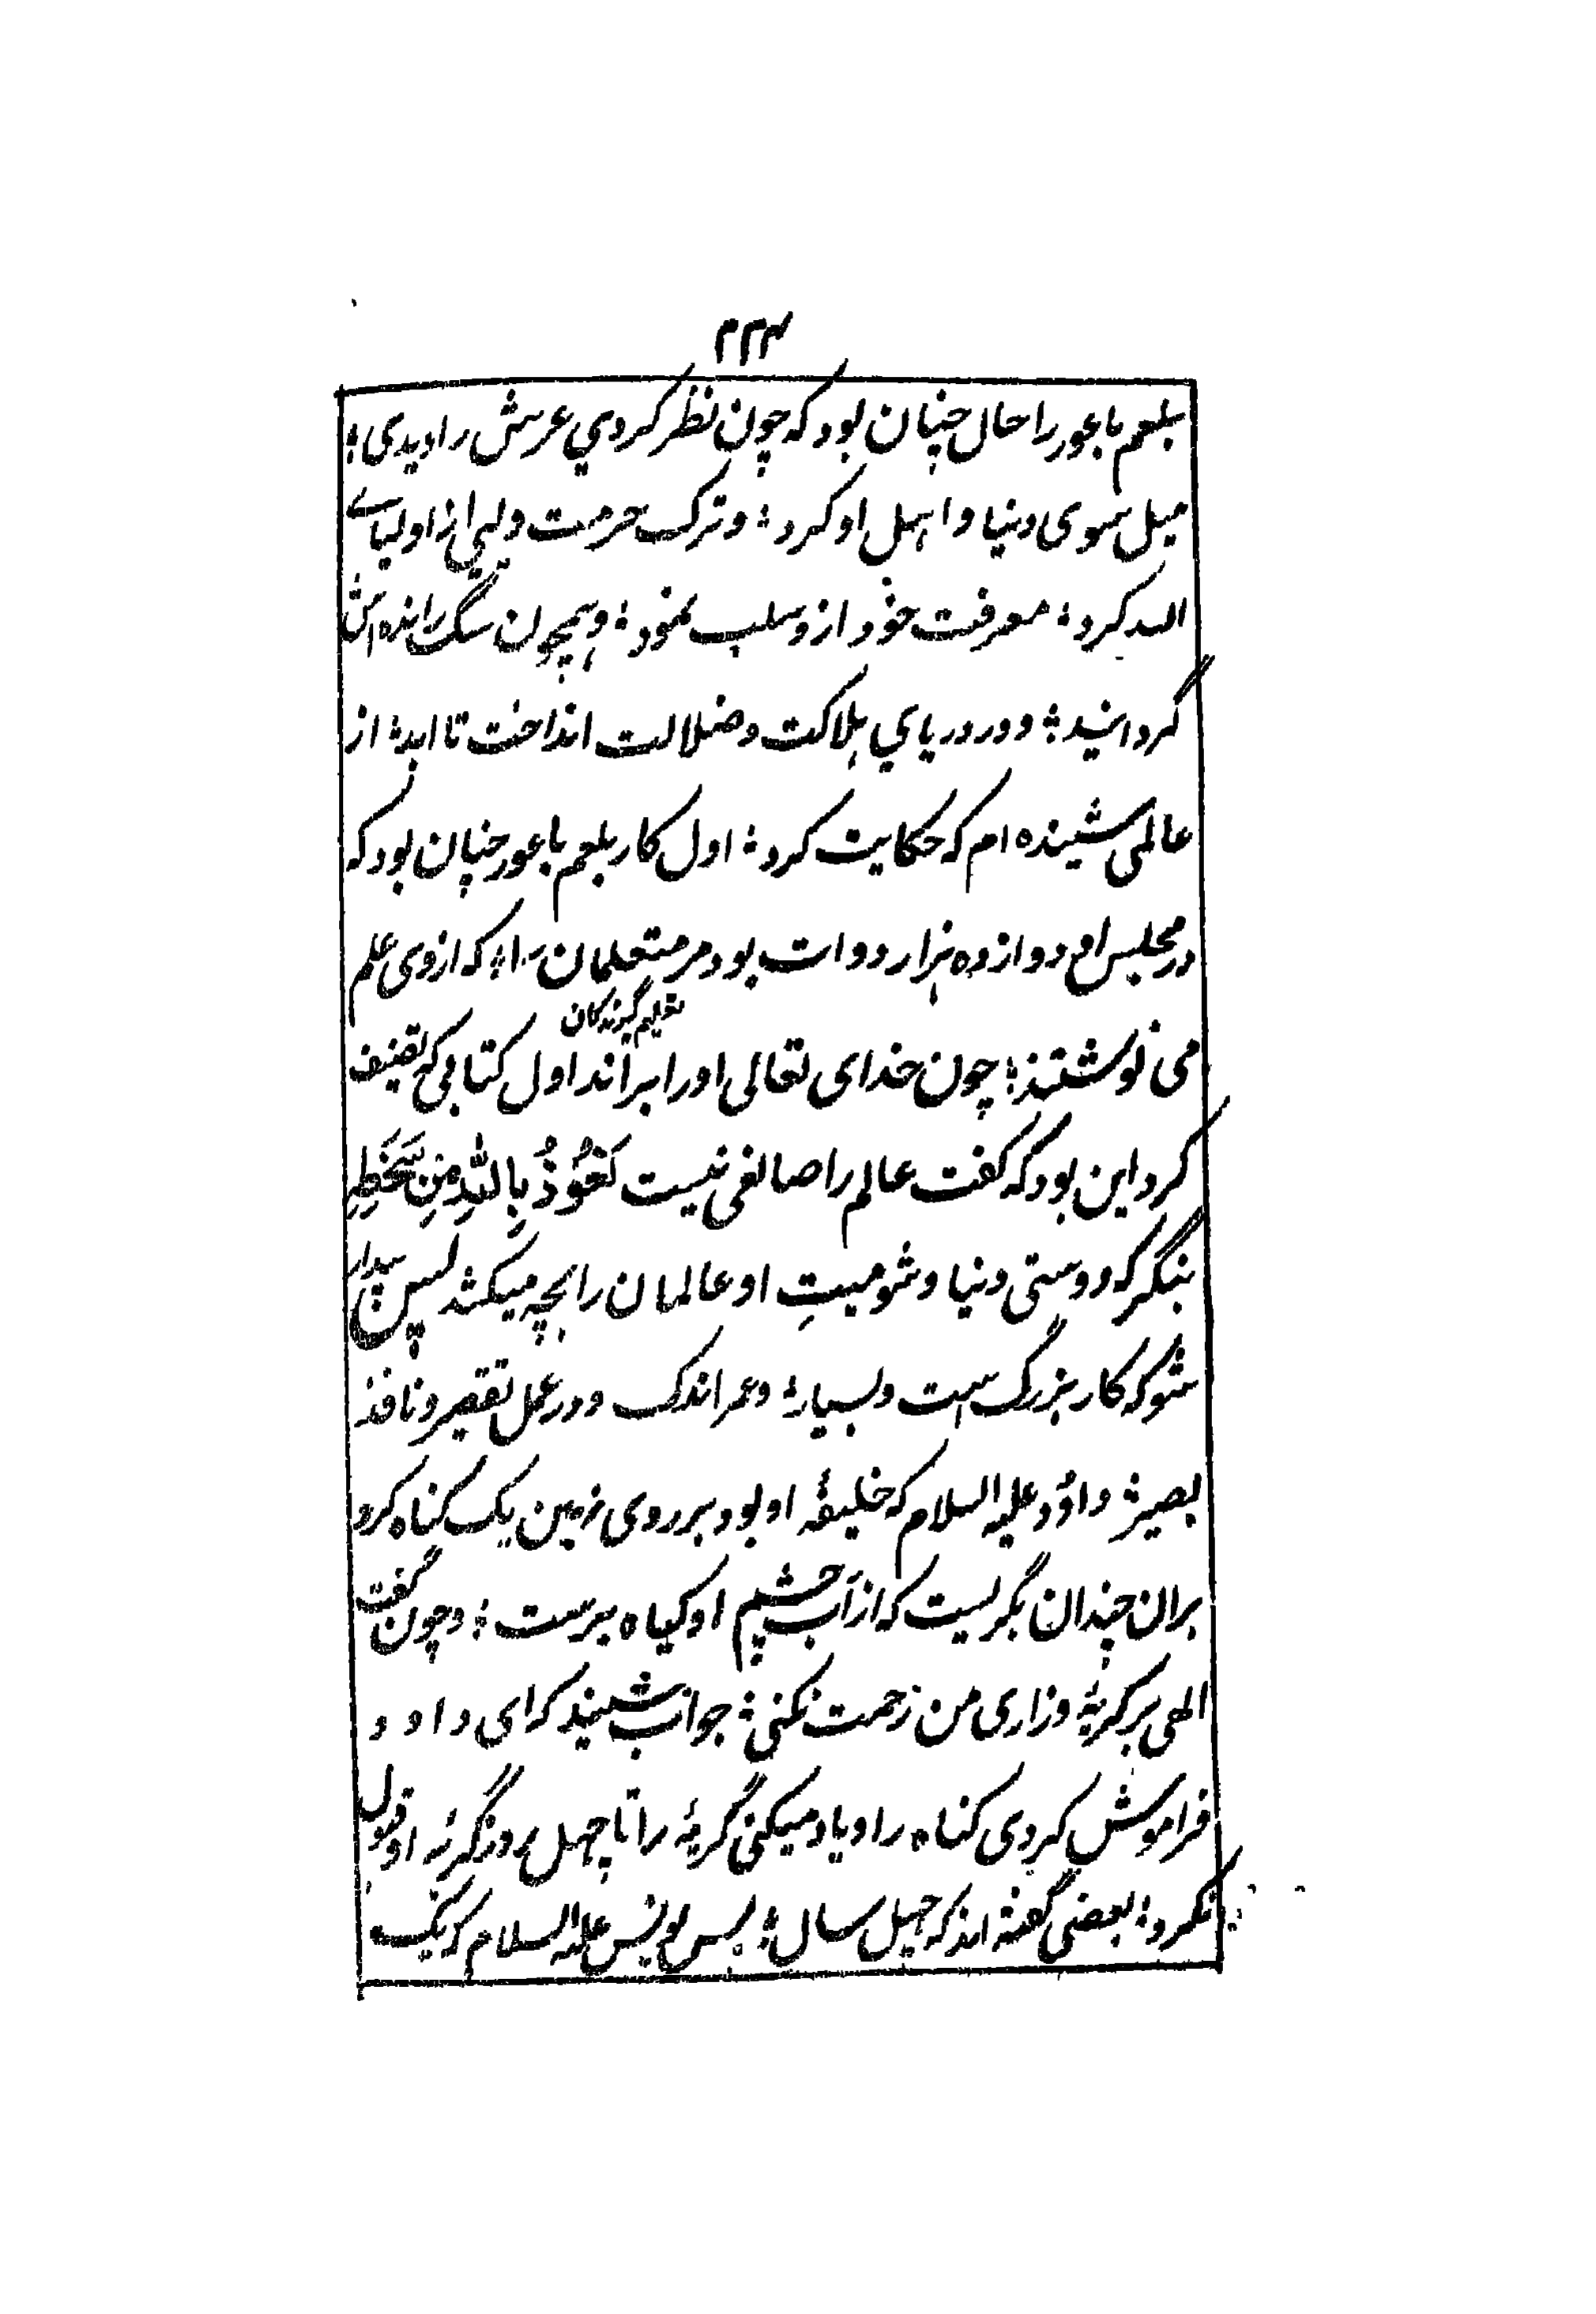 بلعم باعور را حال چنان بود که چون نظر کردي عرش را دیدی؛
میل بسوی دنیا و اہل او کرد؛ و ترک حرمت ولیي از اولیاے
اللہ کرد؛ معرفت خود ازو سلب نمود؛ وہمچون سگ راندہ اش
گردانید؛ و در دریاي ہلاکت و ضلالت انداخت تا ابد؛ از
عالمی شنیدہ ام کہ حکایت کرد؛ اول کار بلعم باعور چنان بود کہ
در مجلس او دوازدہ ہزار دوات بود مر متعلمان را؛ کہ ازوی علم
تعلیم گیرندگان
می نوشتند؛ چون خدای تعالی اورا براند اول کتابی کہ تصنیف
کرد این بود کہ گفت عالم را صانعی نیست نَعُوْذُ بِاللّٰهِ مِنْ سَخَطِهِ
بنگر کہ دوستی دنیا و شومیتِ او عالمان را بچہ میکشد پس بیدار
شو کہ کار بزرگ ست و بسیار؛ و عمر اندک و در عمل تقصیر و ناقد
بصیر؛ داؤد علیہ السلام کہ خلیفۂ او بود بر روی زمین یک گناہ کرد
بران چندان بگریست کہ از آب چشم او گیاہ برست؛ و چون گفت
الٰهی بر گریۂ و زاری من رحمت نکنی؛ جواب شنید کہ ای داود
فراموش کردی گناہ را و یاد میکنی گریۂ را تا چہل روز گریۂ او قبول
نکرد؛ بعضی گفتہ اند کہ چہل سال؛ پس یونس علیہ السلام کہ یک